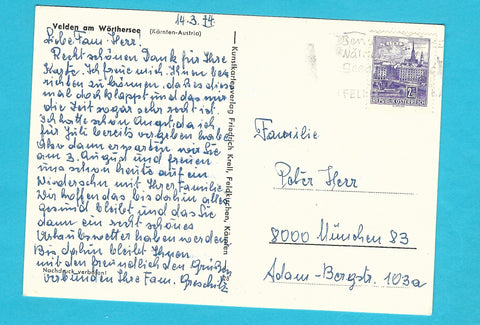 14.3.74
Velden am Wörthersee
(Kärnten-Austria)
Liebe Fam. Herr.
Recht schönen Dank für Ihre
Karte. Ich freue mich Ihnen be-
richten zu können, daß es dies-
mal doch klappt und das mir
die Zeit sogar sehr recht ist.
Ich hatte schon Angst, da ich
für Juli bereits vergeben habe.
Also dann erwarten wir Sie
am 3. August und freuen
uns schon heute auf ein
Wiedersehn mit Ihrer Familie.
Wir hoffen das bis dahin alles
gesund bleibt und das Sie
dann ein recht schönes
Urlaubswetter haben werden.
Bis dahin bleibt Ihnen
mit den freundlichen den Grüßen
verbunden Ihre Fam.
Nachdruck verboten!
Kunstkartenverlag Friedrich Kreil, Feldkirchen, Kärnten
REPUBLIK ÖSTERREICH
Familie
Peter Herr
8000 München 83
Adam-Bergstr. 103a